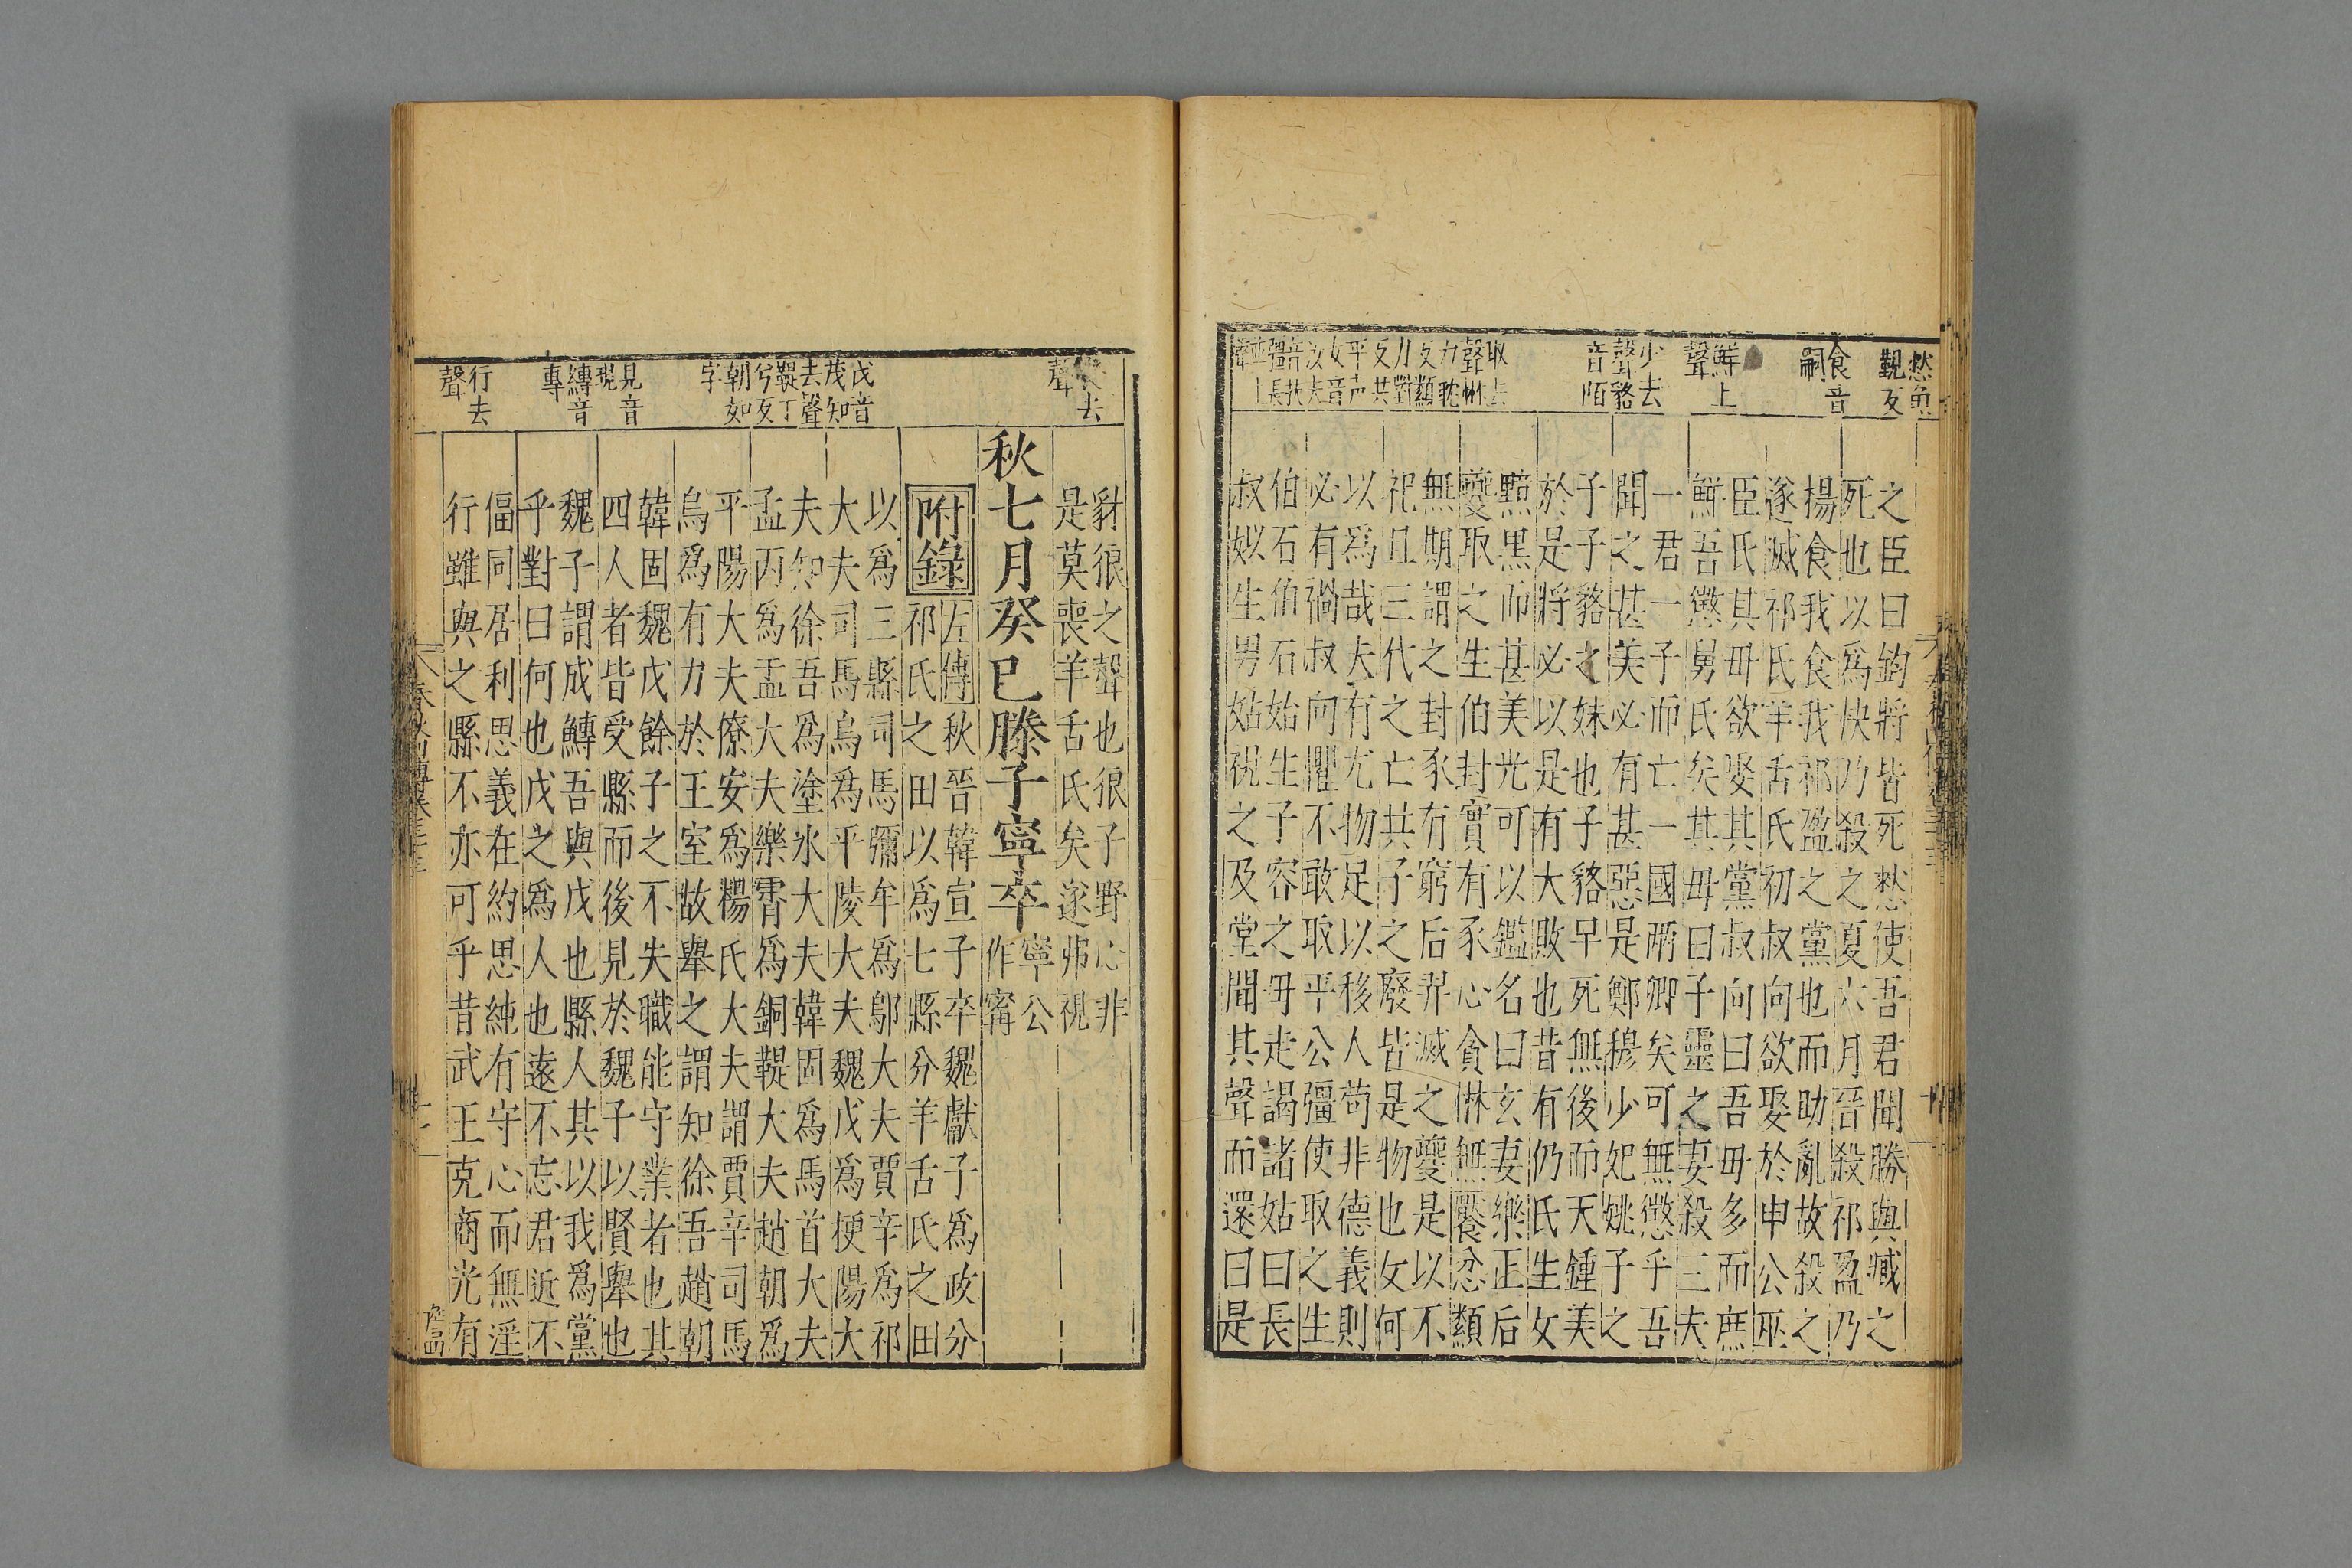 憖魚
覲反
食音
嗣
鮮上
聲
少去
聲貉
音陌
之臣曰鈞將皆死憖使吾君聞勝與臧之
死也以爲快乃殺之夏六月晉殺祁盈乃
楊食我食我祁盈之黨也而助亂故殺之
遂滅祁氏羊舌氏初叔向欲娶於申公巫
臣氏其毋欲娶其黨叔向曰吾毋多而庶
鮮吾懲舅氏矣其毋曰子靈之妻殺三夫
一君一子而亡一國兩卿矣可無懲乎吾
聞之甚美必有甚惡是鄭穆少妃姚子之
子子貉之妹也子貉早死無後而天鍾美
於是將必以是有大敗也昔有仍氏生女
黰黑而甚美光可以鑑名曰玄妻樂正后
夔取之生伯封實有豕心貪惏無饜忿纇
無期謂之封豕有窮后羿滅之夔是以不
祀且三代之亡共子之廢皆是物也女何
以爲哉夫有尤物足以移人苟非德義則
必有禍叔向懼不敢取平公彊使取之生
伯石伯石始生子容之毋走謁諸姑曰長
叔姒生男姑視之及堂聞其聲而還曰是
去
聲
豺狼之聲也狼子野心非
是莫喪羊舌氏矣遂弗視
秋七月癸巳滕子寧卒
寧公
作甯
附錄
左傳
秋晉韓宣子卒魏獻子爲政分
祁氏之田以爲七縣分羊舌氏之田
以爲三縣司馬彌牟爲鄔大夫賈辛爲祁
大夫司馬烏爲平陵大夫魏戊爲梗陽大
夫知徐吾爲塗水大夫韓固爲馬首大夫
孟丙爲盂大夫樂霄爲銅鞮大夫趙朝爲
平陽大夫僚安爲楊氏大夫謂賈辛司馬
烏爲有力於王室故舉之謂知徐吾趙朝
韓固魏戊餘子之不失職能守業者也其
四人者皆受縣而後見於魏子以賢舉也
魏子謂成鱄吾與戊也縣人其以我爲黨
乎對曰何也戊之爲人也遠不忘君近不
偪同居利思義在約思純有守心而無淫
行雖與之縣不亦可乎昔武王克商光有
戊音
茂知
去聲
鞮丁
兮反
朝如
字
見音
現
鱄音
專
行去
聲